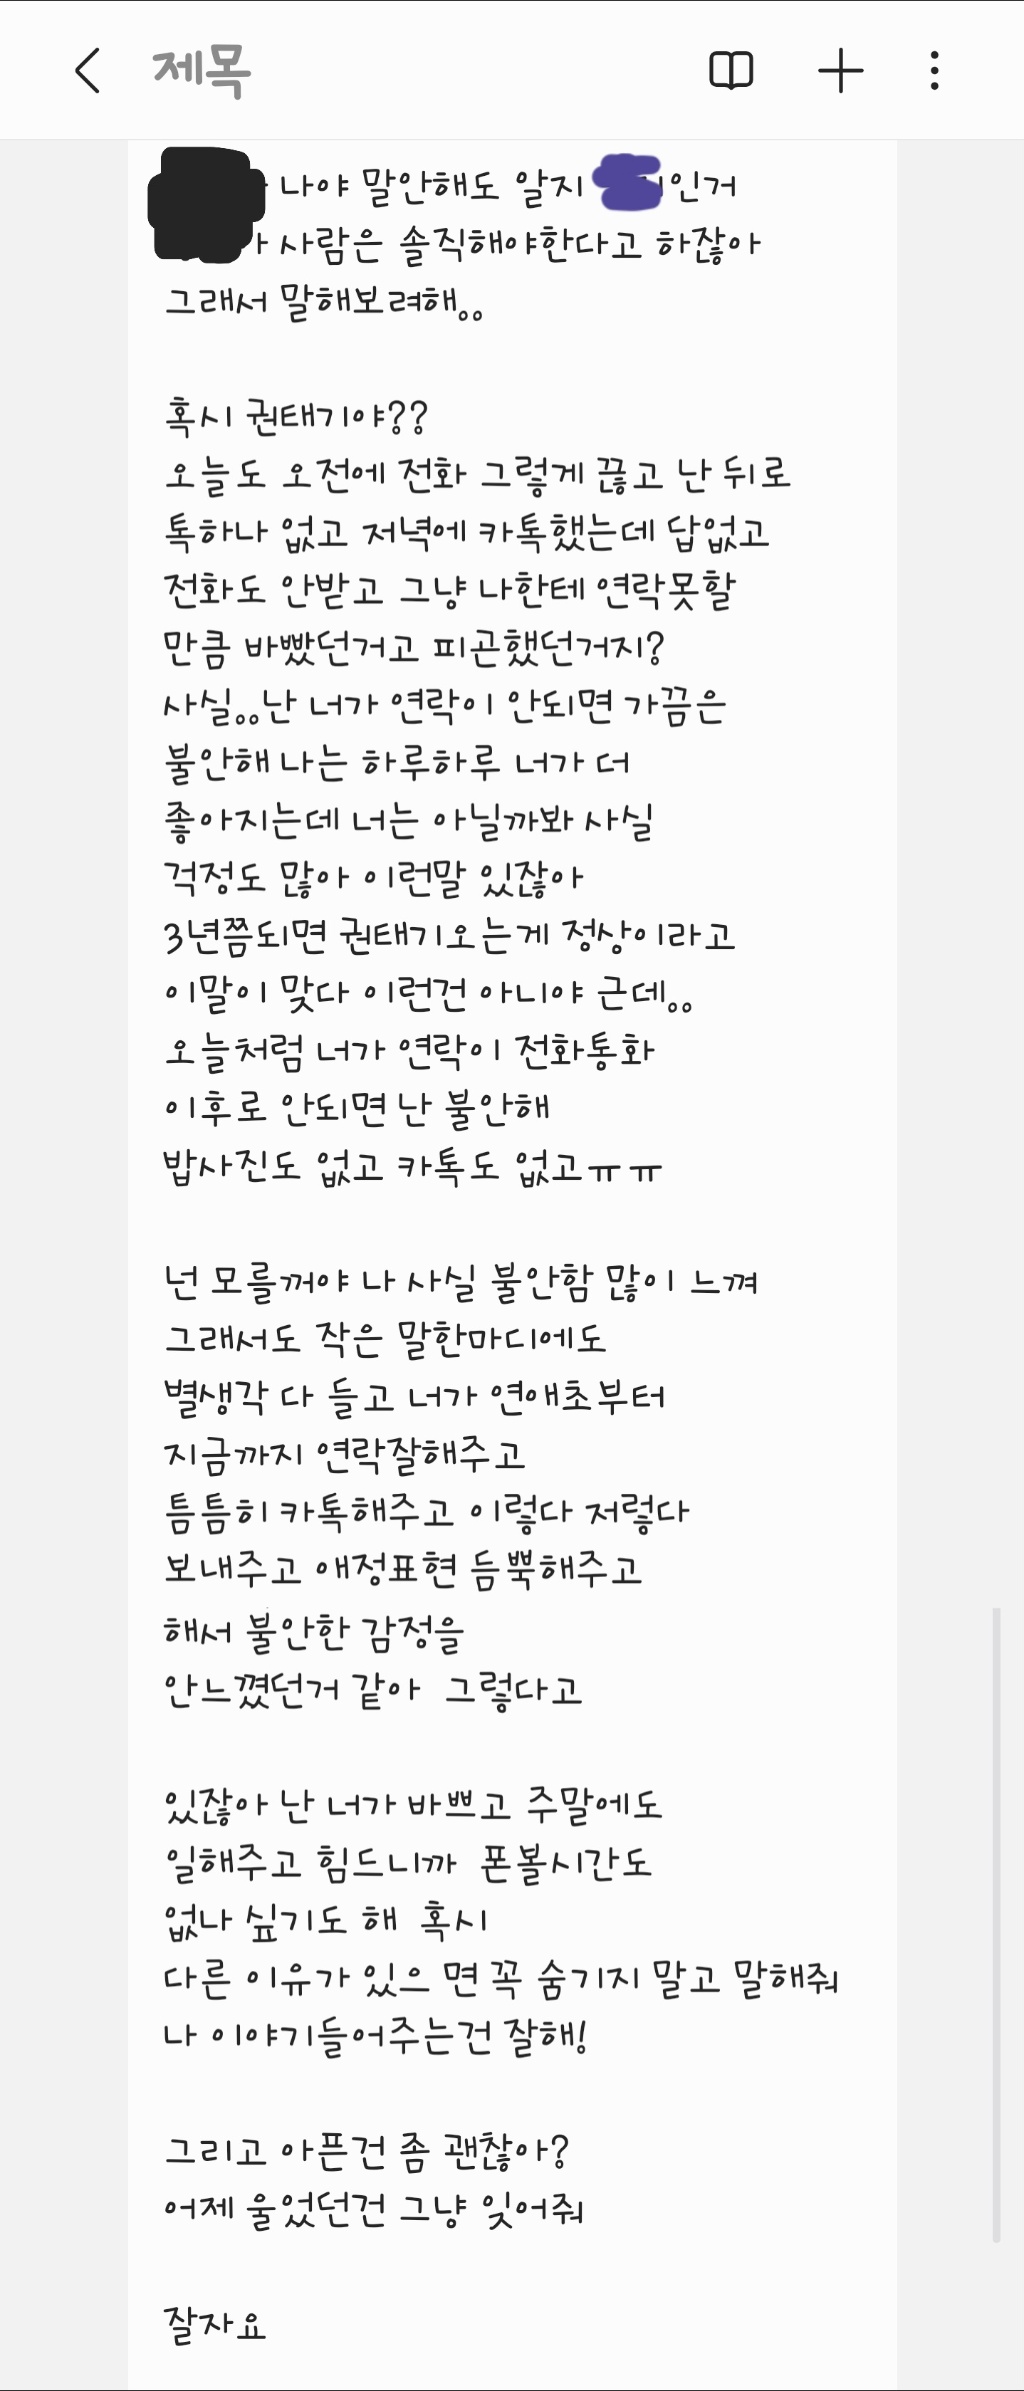 제목
나야 말안해도 알지 인거
사람은 솔직해야한다고 하잖아
그래서 말해보려해..
혹시 권태기야??
오늘도 오전에 전화 그렇게 끊고 난 뒤로
톡하나 없고 저녁에 카톡했는데 답없고
전화도 안받고 그냥 나한테 연락못할
만큼 바빴던거고 피곤했던거지?
사실..난 너가 연락이 안되면 가끔은
불안해 나는 하루하루 너가 더
좋아지는데 너는 아닐까봐 사실
걱정도 많아 이런말 있잖아
3년쯤되면 권태기오는게 정상이라고
이말이 맞다 이런건 아니야 근데..
오늘처럼 너가 연락이 전화통화
이후로 안되면 난 불안해
밥사진도 없고 카톡도 없고ㅠㅠ
넌 모를꺼야 나 사실 불안함 많이 느껴
그래서도 작은 말한마디에도
별생각 다 들고 너가 연애초부터
지금까지 연락잘해주고
틈틈히 카톡해주고 이렇다 저렇다
보내주고 애정표현 듬뿍해주고
해서 불안한 감정을
안느꼈던거 같아 그렇다고
있잖아 난 너가 바쁘고 주말에도
일해주고 힘드니까 폰볼시간도
없나 싶기도 해 혹시
다른 이유가 있으 면 꼭 숨기지 말고 말해줘
나 이야기들어주는건 잘해!
그리고 아픈건 좀 괜찮아?
어제 울었던건 그냥 잊어줘
잘자요